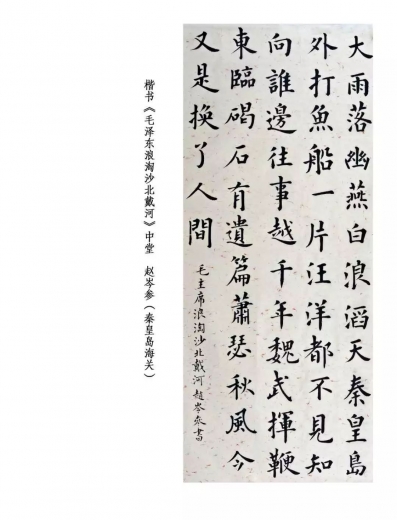 大雨落幽燕白浪滔天秦皇島
外打魚船一片汪洋都不見知
向誰邊往事越千年魏武揮鞭
東臨碣石有遺篇蕭瑟秋風今
又是換了人間
毛主席浪淘沙北戴河 趙岑參書
楷书《毛泽东浪淘沙北戴河》中堂 赵岑参（秦皇岛海关）